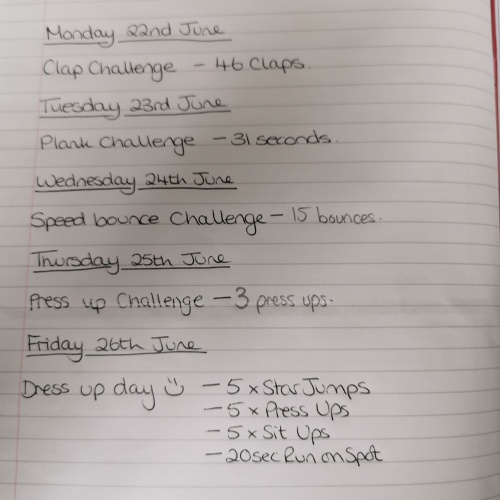 Monday 22nd June
Clap Challenge - 46 Claps.
Tuesday 23rd June
Plank Challenge - 31 seconds.
Wednesday 24th June
Speed bounce Challenge - 15 bounces.
Thursday 25th June
Press up Challenge - 3 press ups.
Friday 26th June
Dress up day - 5 x Star Jumps
- 5 x Press Ups
- 5 x Sit Ups
- 20sec Run on Spot